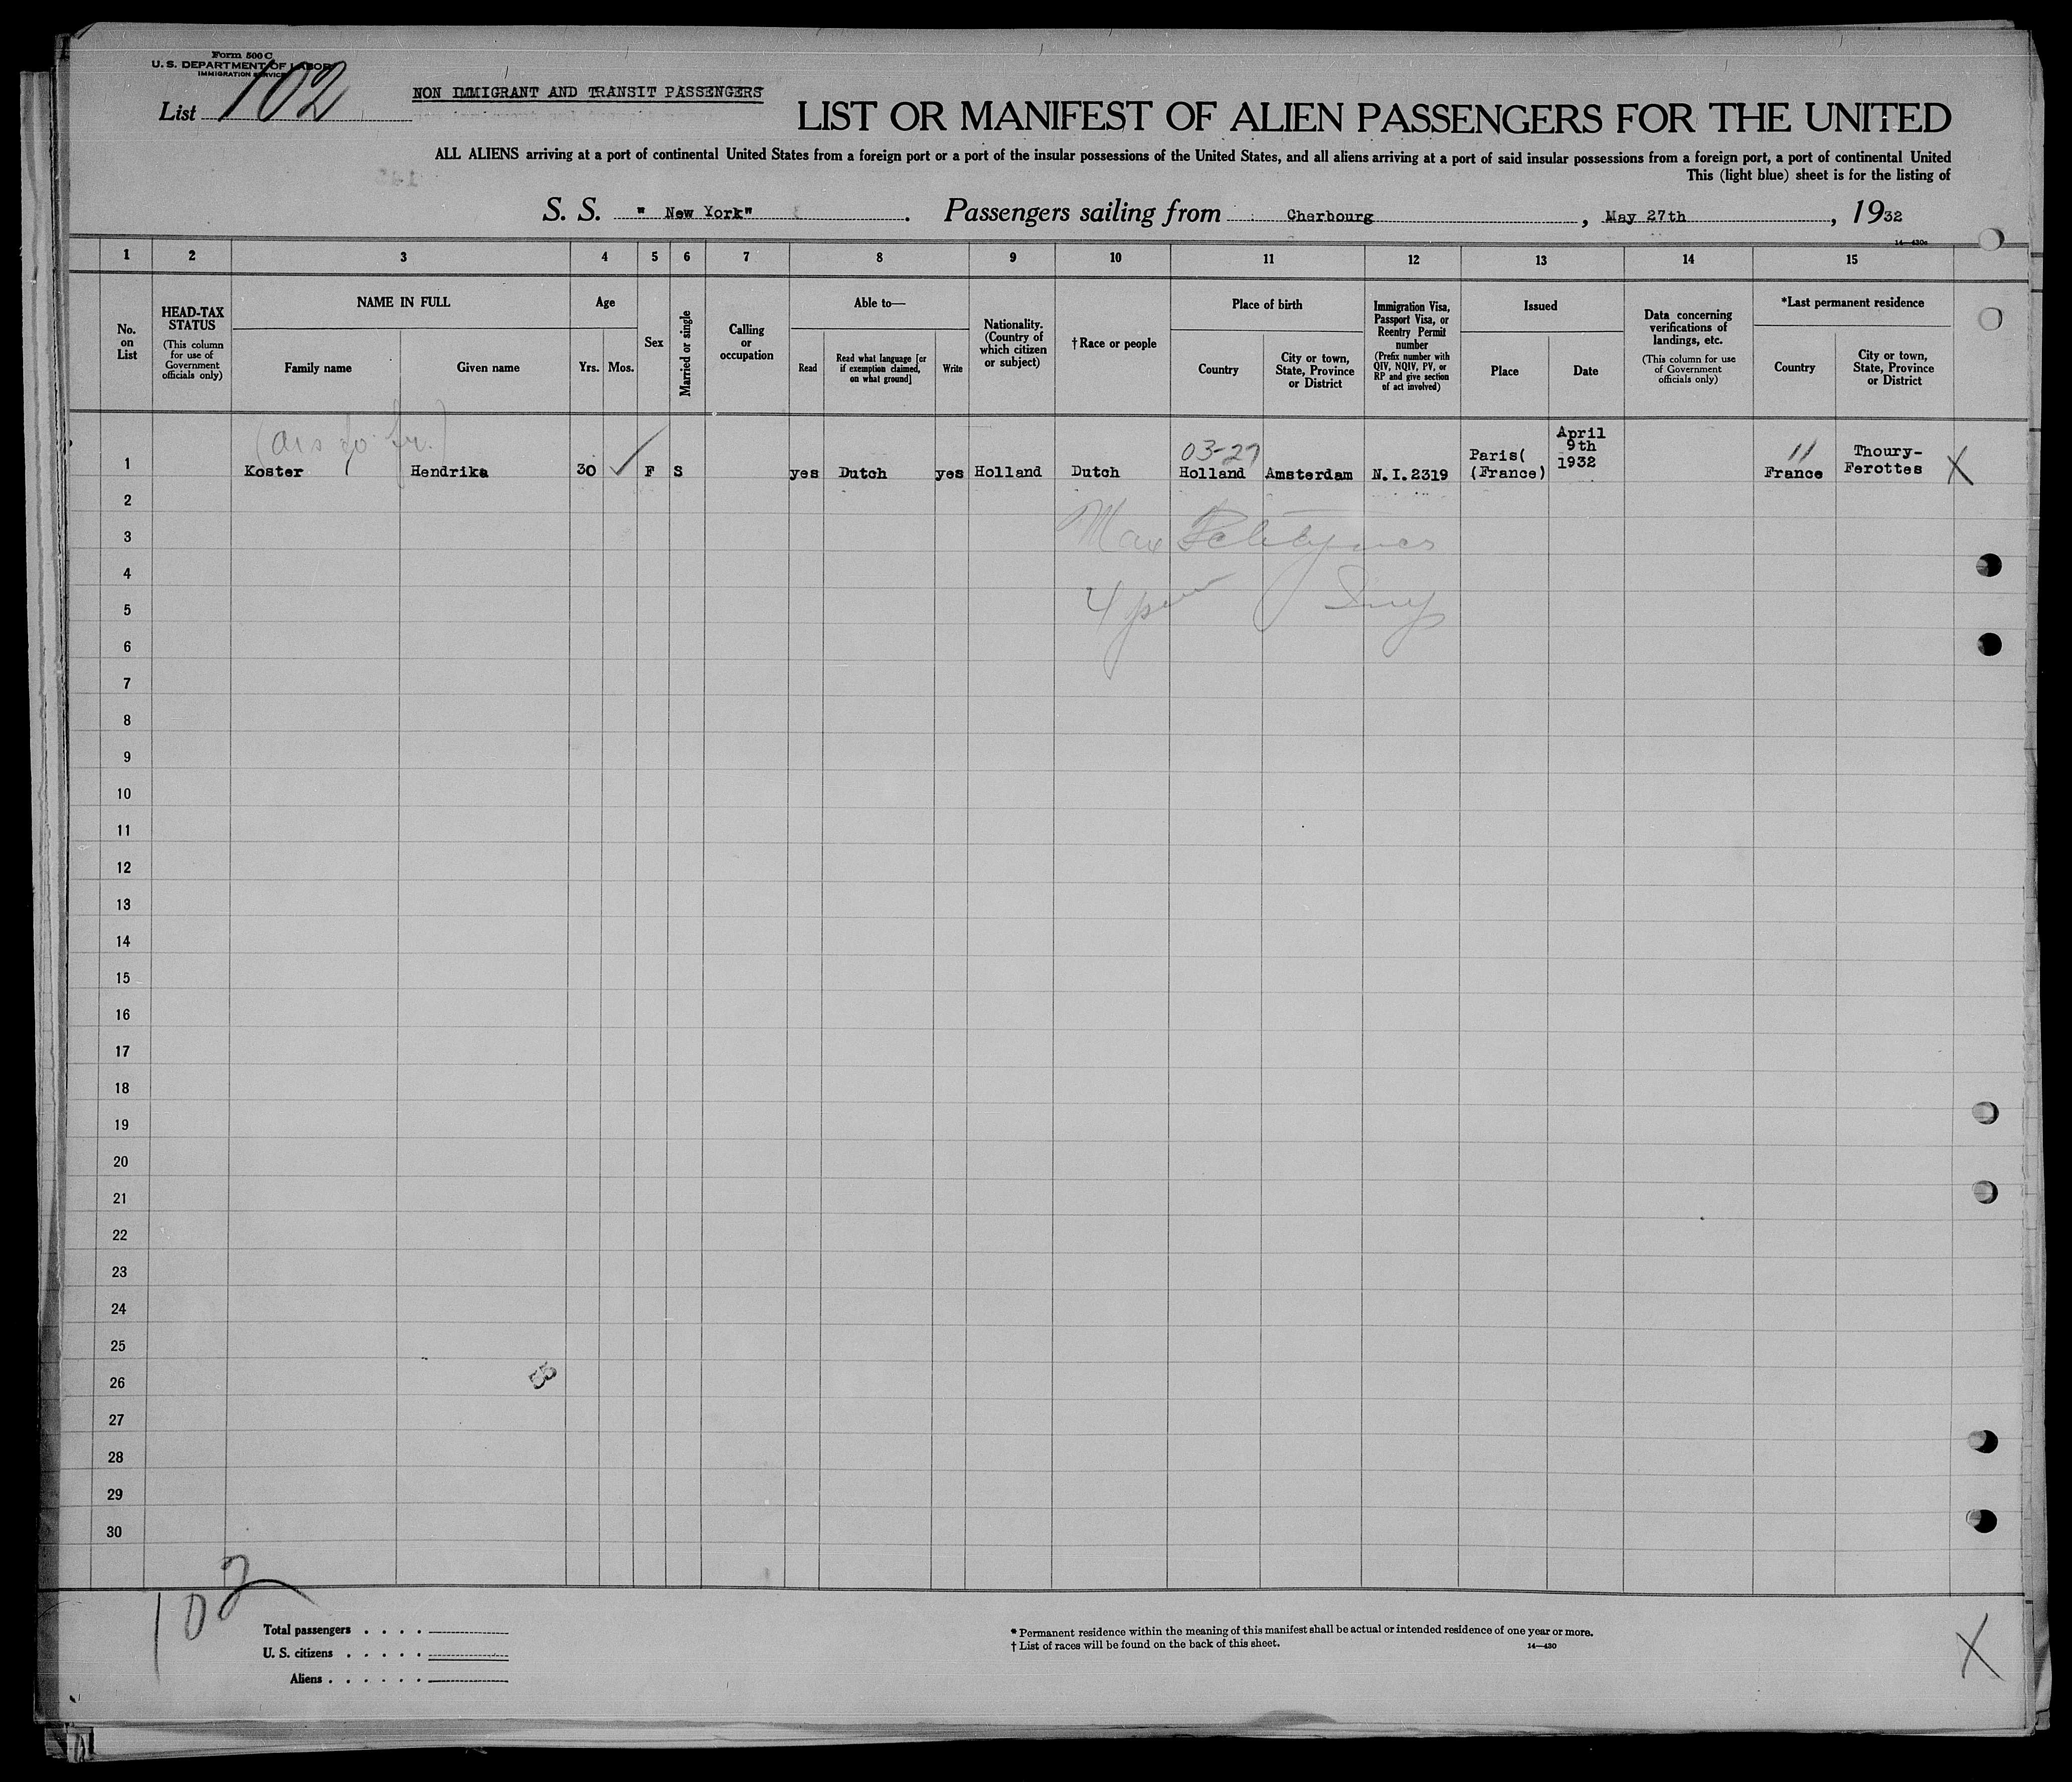 Form 500 C
U. S. DEPARTMENT OF LABOR
IMMIGRATION SERVICE
List 102
NON IMMIGRANT AND TRANSIT PASSENGERS
LIST OR MANIFEST OF ALIEN PASSENGERS FOR THE UNITED
ALL ALIENS arriving at a port of continental United States from a foreign port or a port of the insular possessions of the United States, and all aliens arriving at a port of said insular possessions from a foreign port, a port of continental United
This (light blue) sheet is for the listing of
S. S. " New York" . Passengers sailing from Cherbourg , May 27th , 1932
14—430c
1 2 3 4 5 6 7 8 9 10 11 12 13 14 15
No. on List
HEAD-TAX STATUS
(This column for use of Government officials only)
NAME IN FULL
Family name Given name
Age
Yrs. Mos.
Sex
Married or single
Calling or occupation
Able to—
Read Read what language [or if exemption claimed, on what ground] Write
Nationality. (Country of which citizen or subject)
† Race or people
Place of birth
Country City or town, State, Province or District
Immigration Visa, Passport Visa, or Reentry Permit number
(Prefix number with QIV, NQIV, PV, or RP and give section of act involved)
Issued
Place Date
Data concerning verifications of landings, etc.
(This column for use of Government officials only)
*Last permanent residence
Country City or town, State, Province or District
03-27 11
1 Koster Hendrika 30 ✓ F S yes Dutch yes Holland Dutch Holland Amsterdam N.I.2319 Paris( (France) April 9th 1932 France Thoury-Ferottes X
2
3 Max
4
5 4
6
7
8
9
10
11
12
13
14
15
16
17
18
19
20
21
22
23
24
25
26
27
28
29
30
102
Total passengers . . . .
U. S. citizens . . . . .
Aliens . . . . . .
* Permanent residence within the meaning of this manifest shall be actual or intended residence of one year or more.
† List of races will be found on the back of this sheet.
14—430
X